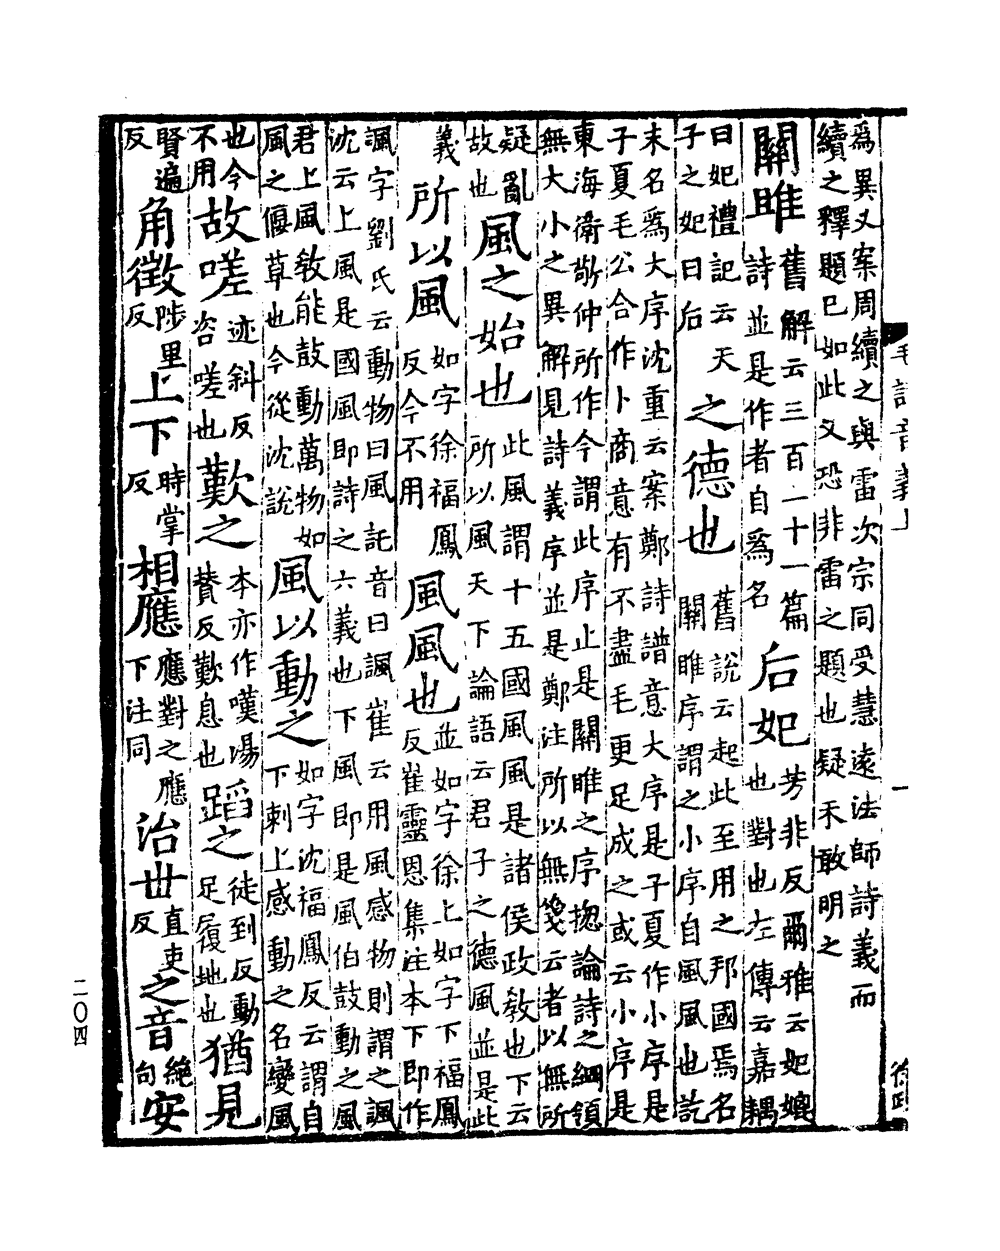 毛詩音義上 一
為異又案周續之與雷次宗同受慧遠法師詩義而續之釋題已如此又恐非雷之題也疑未敢明之
關雎舊解云三百一十一篇詩並是作者自為名后妃芳非反爾雅云妃媲也對也左傳云嘉耦
曰妃禮記云天子之妃曰后之德也舊說云起此至用之邦國焉名關雎序謂之小序自風風也訖
末名為大序沈重云案鄭詩譜意大序是子夏作小序是子夏毛公合作卜商意有不盡毛更足成之或云小序是
東海衛敬仲所作今謂此序止是關雎之序揔論詩之綱領無大小之異解見詩義序並是鄭注所以無箋云者以無所
疑亂故也風之始也此風謂十五國風風是諸侯政教也下云所以風天下論語云君子之德風並是此
義所以風如字徐福鳳反今不用風風也並如字徐上如字下福鳳反崔靈恩集注本下即作
諷字劉氏云動物曰風託音曰諷崔云用風感物則謂之諷沈云上風是國風即詩之六義也下風即是風伯鼓動之風
君上風教能鼓動萬物如風之偃草也今從沈說風以動之如字沈福鳳反云謂自下刺上感動之名變風
也今不用故嗟迹斜反咨嗟也歎之本亦作嘆湯贊反歎息也蹈之徒到反動足履地也猶見
賢遍反角徵陟里反上下時掌反相應應對之應下注同治世直吏反之音絕句安
二〇四